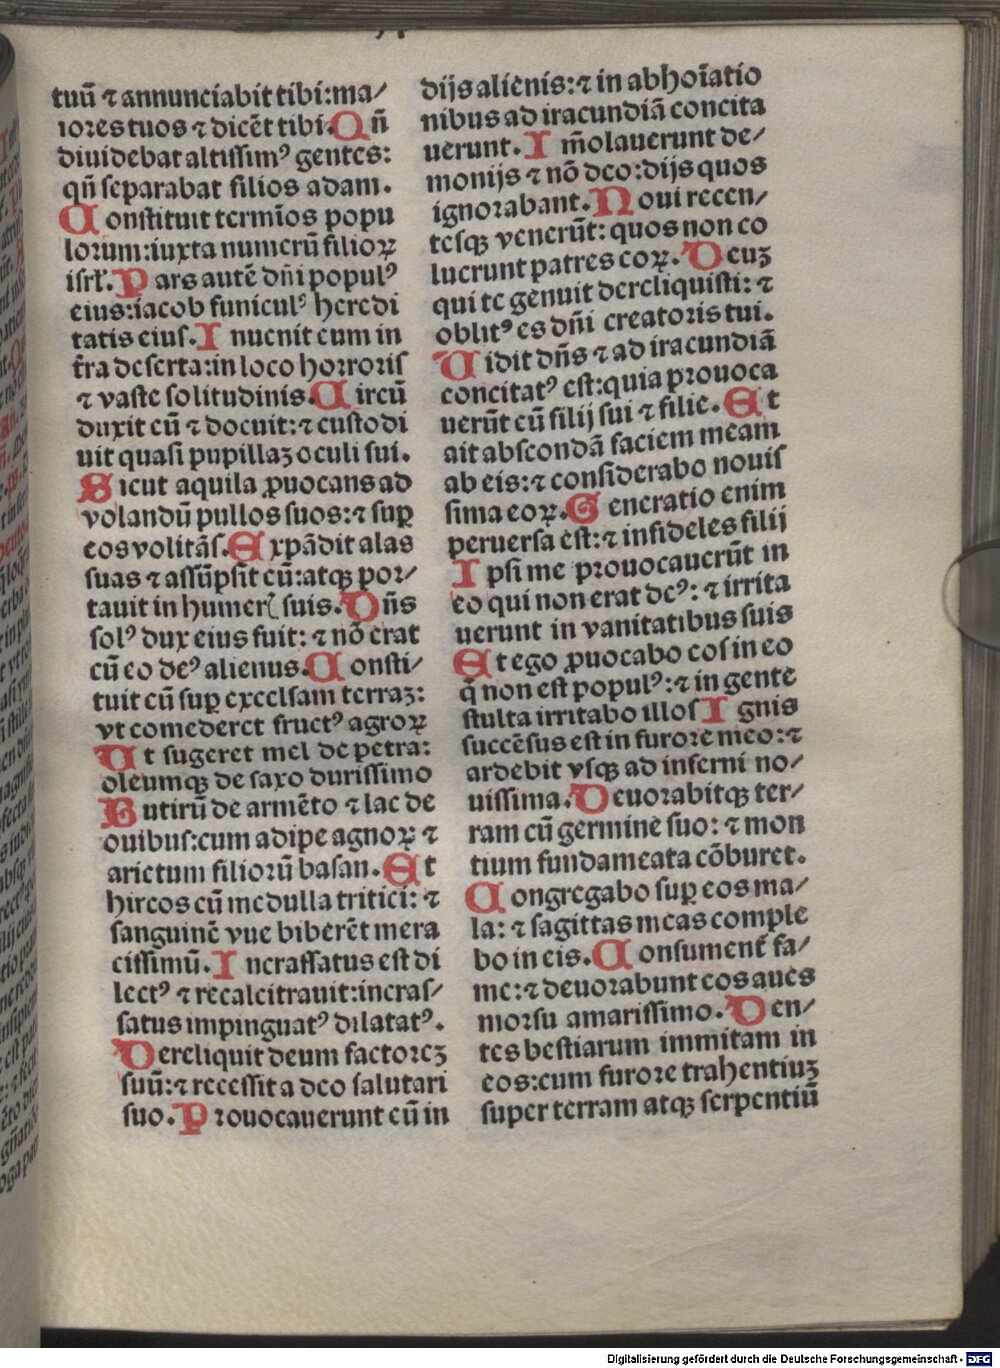 tuū ⁊ annunciabit tibi:ma/
iores tuos ⁊ dicēt tibi. Qn̄
diuidebat altissimꝰ gentes:
qn̄ separabat filios adam.
Constituit termīos popu
lorum:iuxta numerū filioꝝ
isrł. Pars autē dn̄i populꝰ
eius:iacob funiculꝰ heredi
tatis eius. Inuenit eum in
t̄ra deserta:in loco horroris
⁊ vaste solitudinis. Circū
duxit eū ⁊ docuit:⁊ custodi
uit quasi pupillaꝫ oculi sui.
Sicut aquila ꝓuocans ad
volandū pullos suos:⁊ suꝑ
eos volitās. Expādit alas
suas ⁊ assūpsit eū:atqꝫ por/
tauit in humeꝭ suis. Dn̄s
solꝰ dux eius fuit: ⁊ nō erat
cū eo deꝰ alienus. Consti/
tuit eū suꝑ excelsam terraꝫ:
vt comederet fructꝰ agroꝝ
Ut sugeret mel de petra:
oleumqꝫ de saxo durissimo
Butirū de armēto ⁊ lac de
ouibus:cum adipe agnoꝝ ⁊
arietum filiorū basan. Et
hircos cū medulla tritici: ⁊
sanguinē vue biberēt mera
cissimū. Incrassatus est di
lectꝰ ⁊ recalcitrauit:incras/
satus impinguatꝰ dilatatꝰ.
Dereliquit deum factoreꝫ
suū:⁊ recessit a deo salutari
suo. Prouocauerunt eū in
dijs alienis:⁊ in abhoīatio
nibus ad iracundiā concita
uerunt. Im̄olauerunt de/
monijs ⁊ nō deo:dijs quos
ignorabant. Noui recen/
tesqꝫ venerūt: quos non co
luerunt patres eoꝝ. Deuꝫ
qui te genuit dereliquisti: ⁊
oblitꝰ es dn̄i creatoris tui.
Uidit dn̄s ⁊ ad iracundiā
concitatꝰ est:quia prouoca
uerūt eū filij sui ⁊ filie. Et
ait abscondā faciem meam
ab eis:⁊ considerabo nouis
sima eoꝝ. Generatio enim
peruersa est:⁊ infideles filij
Ipsi me prouocauerūt in
eo qui non erat deꝰ: ⁊ irrita
uerunt in vanitatibus suis
Et ego ꝓuocabo eos in eo
q̄ non est populꝰ:⁊ in gente
stulta irritabo illos Ignis
succēsus est in furore meo:⁊
ardebit vsqꝫ ad inferni no/
uissima. Deuorabitqꝫ ter/
ram cū germine suo: ⁊ mon
tium fundameata cōburet.
Congregabo suꝑ eos ma/
la: ⁊ sagittas meas comple
bo in eis. Consument̄ fa/
me:⁊ deuorabunt eos aues
morsu amarissimo. Den/
tes bestiarum immitam in
eos:cum furore trahentiuꝫ
super terram atqꝫ serpentiū
Digitalisierung gefördert durch die Deutsche Forschungsgemeinschaft - DFG